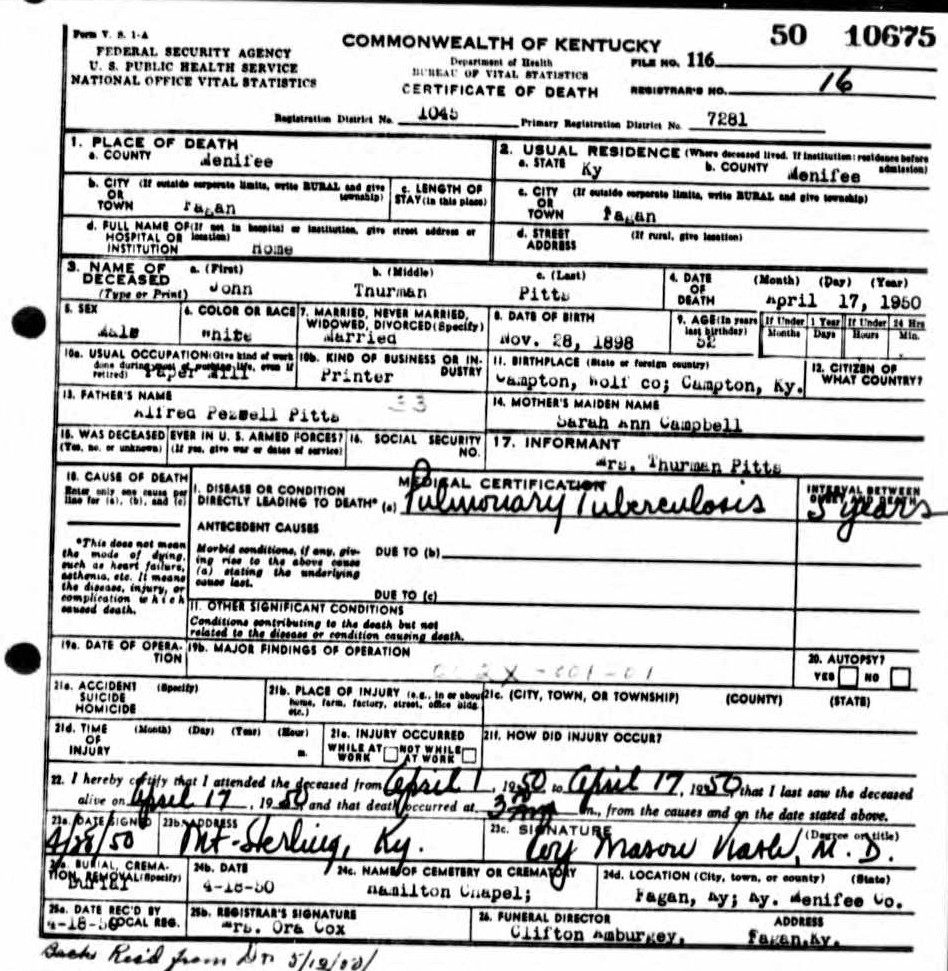 Form V. S. 1-A
50 10675
FEDERAL SECURITY AGENCY
U. S. PUBLIC HEALTH SERVICE
NATIONAL OFFICE VITAL STATISTICS
COMMONWEALTH OF KENTUCKY
Department of Health
BUREAU OF VITAL STATISTICS
CERTIFICATE OF DEATH
FILE NO. 116
REGISTRAR'S NO. 16
Registration District No. 1045 Primary Registration District No. 7281
1. PLACE OF DEATH
a. COUNTY Menifee
2. USUAL RESIDENCE (Where deceased lived. If institution: residence before admission)
a. STATE Ky b. COUNTY Menifee
b. CITY (If outside corporate limits, write RURAL and give township)
OR
TOWN Fagan
c. LENGTH OF STAY (in this place)
c. CITY (If outside corporate limits, write RURAL and give township)
OR
TOWN Fagan
d. FULL NAME OF (If not in hospital or institution, give street address or location)
HOSPITAL OR
INSTITUTION Home
d. STREET ADDRESS (If rural, give location)
3. NAME OF DECEASED (Type or Print)
a. (First) b. (Middle) c. (Last)
John Thurman Pitts
4. DATE OF DEATH (Month) (Day) (Year)
April 17, 1950
5. SEX
Male
6. COLOR OR RACE
White
7. MARRIED, NEVER MARRIED, WIDOWED, DIVORCED (Specify)
Married
8. DATE OF BIRTH
Nov. 28, 1898
9. AGE (In years last birthday)
52
If Under 1 Year If Under 24 Hrs
Months Days Hours Min.
10a. USUAL OCCUPATION (Give kind of work done during most of working life, even if retired)
Paper Mill
10b. KIND OF BUSINESS OR INDUSTRY
Printer
11. BIRTHPLACE (State or foreign country)
Campton, Wolf co; Campton, Ky.
12. CITIZEN OF WHAT COUNTRY?
13. FATHER'S NAME
Alfred Pezwell Pitts 33
14. MOTHER'S MAIDEN NAME
Sarah Ann Campbell
15. WAS DECEASED EVER IN U. S. ARMED FORCES?
(Yes, no, or unknown) (If yes, give war or dates of service)
16. SOCIAL SECURITY NO.
17. INFORMANT
Mrs. Thurman Pitts
18. CAUSE OF DEATH
Enter only one cause per line for (a), (b), and (c)
MEDICAL CERTIFICATION
I. DISEASE OR CONDITION
DIRECTLY LEADING TO DEATH* (a) Pulmonary Tuberculosis
INTERVAL BETWEEN ONSET AND DEATH
5 years
*This does not mean the mode of dying, such as heart failure, asthenia, etc. It means the disease, injury, or complication which caused death.
ANTECEDENT CAUSES
Morbid conditions, if any, giving rise to the above cause (a) stating the underlying cause last.
DUE TO (b)
DUE TO (c)
II. OTHER SIGNIFICANT CONDITIONS
Conditions contributing to the death but not related to the disease or condition causing death.
19a. DATE OF OPERATION
19b. MAJOR FINDINGS OF OPERATION
20. AUTOPSY?
YES NO
21a. ACCIDENT (Specify)
SUICIDE
HOMICIDE
21b. PLACE OF INJURY (e.g., in or about home, farm, factory, street, office bldg. etc.)
21c. (CITY, TOWN, OR TOWNSHIP) (COUNTY) (STATE)
21d. TIME OF INJURY (Month) (Day) (Year) (Hour) m.
21e. INJURY OCCURRED
WHILE AT WORK NOT WHILE AT WORK
21f. HOW DID INJURY OCCUR?
22. I hereby certify that I attended the deceased from April 1, 1950 to April 17, 1950, that I last saw the deceased
alive on April 17, 1950 and that death occurred at 3 m., from the causes and on the date stated above.
23a. DATE SIGNED
4/28/50
23b. ADDRESS
Mt. Sterling, Ky.
23c. SIGNATURE (Degree or title)
Mason M.D.
24a. BURIAL, CREMATION, REMOVAL (Specify)
Burial
24b. DATE
4-18-50
24c. NAME OF CEMETERY OR CREMATORY
Hamilton Chapel;
24d. LOCATION (City, town, or county) (State)
Fagan, Ky; Ky. Menifee Co.
25a. DATE REC'D BY LOCAL REG.
4-18-50
25b. REGISTRAR'S SIGNATURE
Mrs. Ora Cox
26. FUNERAL DIRECTOR ADDRESS
Clifton Amburgey, Fagan, Ky.
Back Rec'd from Dr. 5/12/50